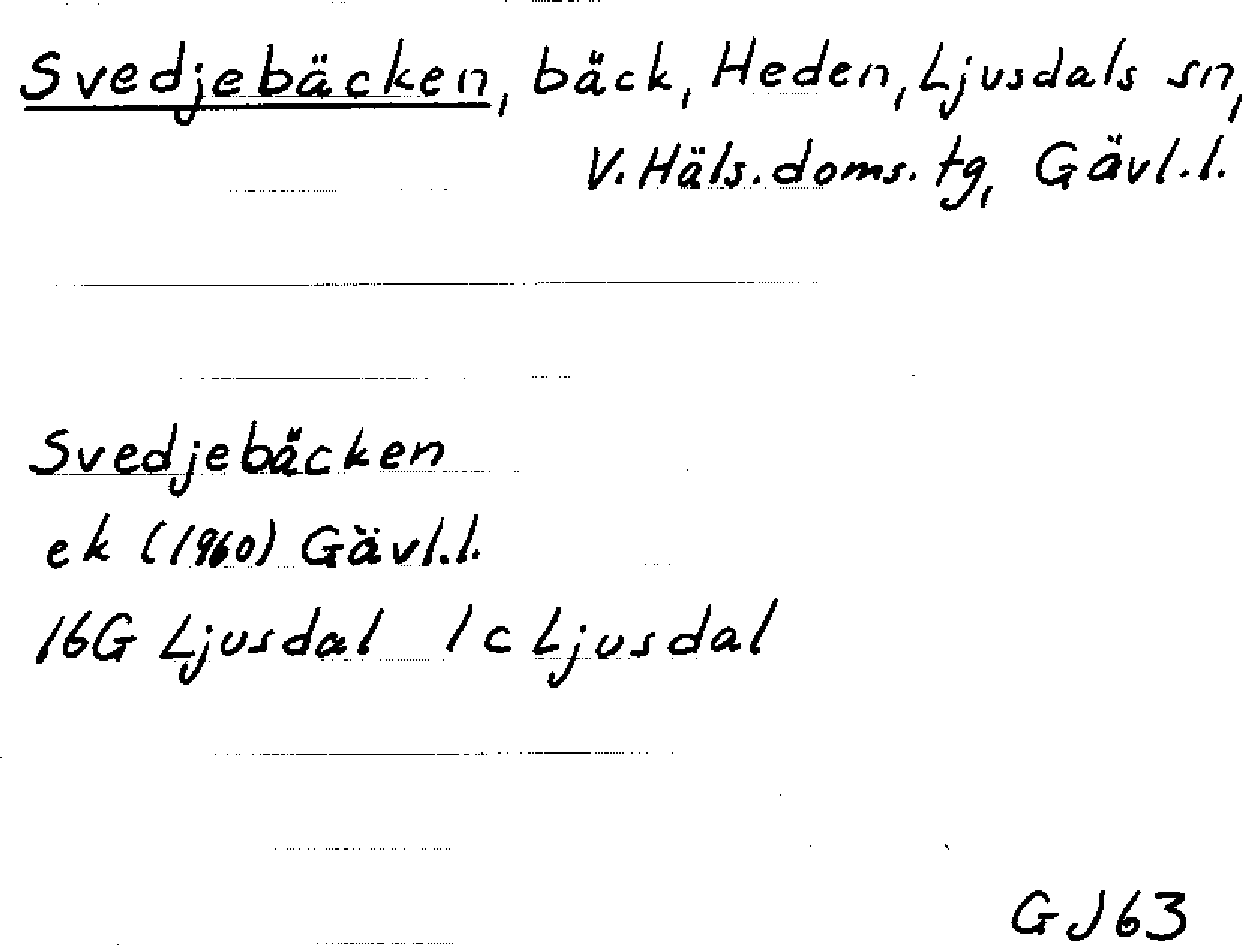 Svedjebäcken, bäck, Heden, Ljusdals sn,
V. Häls. doms. tg, Gävl.l.
Svedjebäcken
ek (1960) Gävl.l.
16G Ljusdal 1c Ljusdal
GJ63